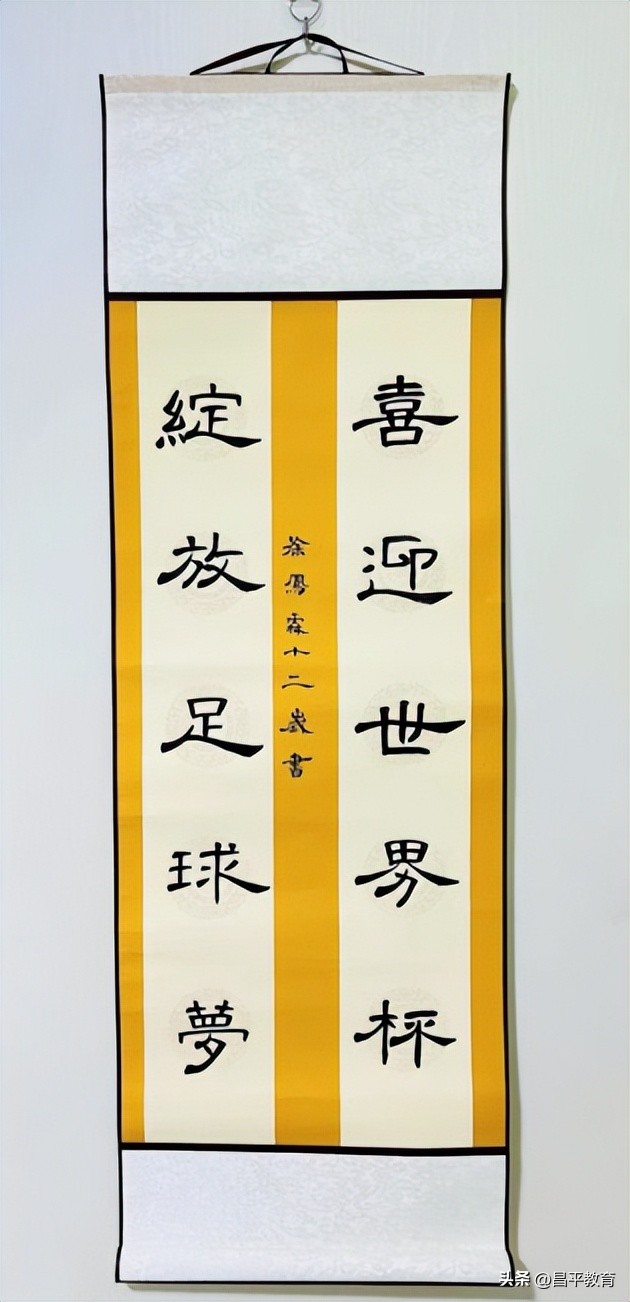 喜迎世界杯
綻放足球夢
徐鳳霖十二歲書
头条 @昌平教育